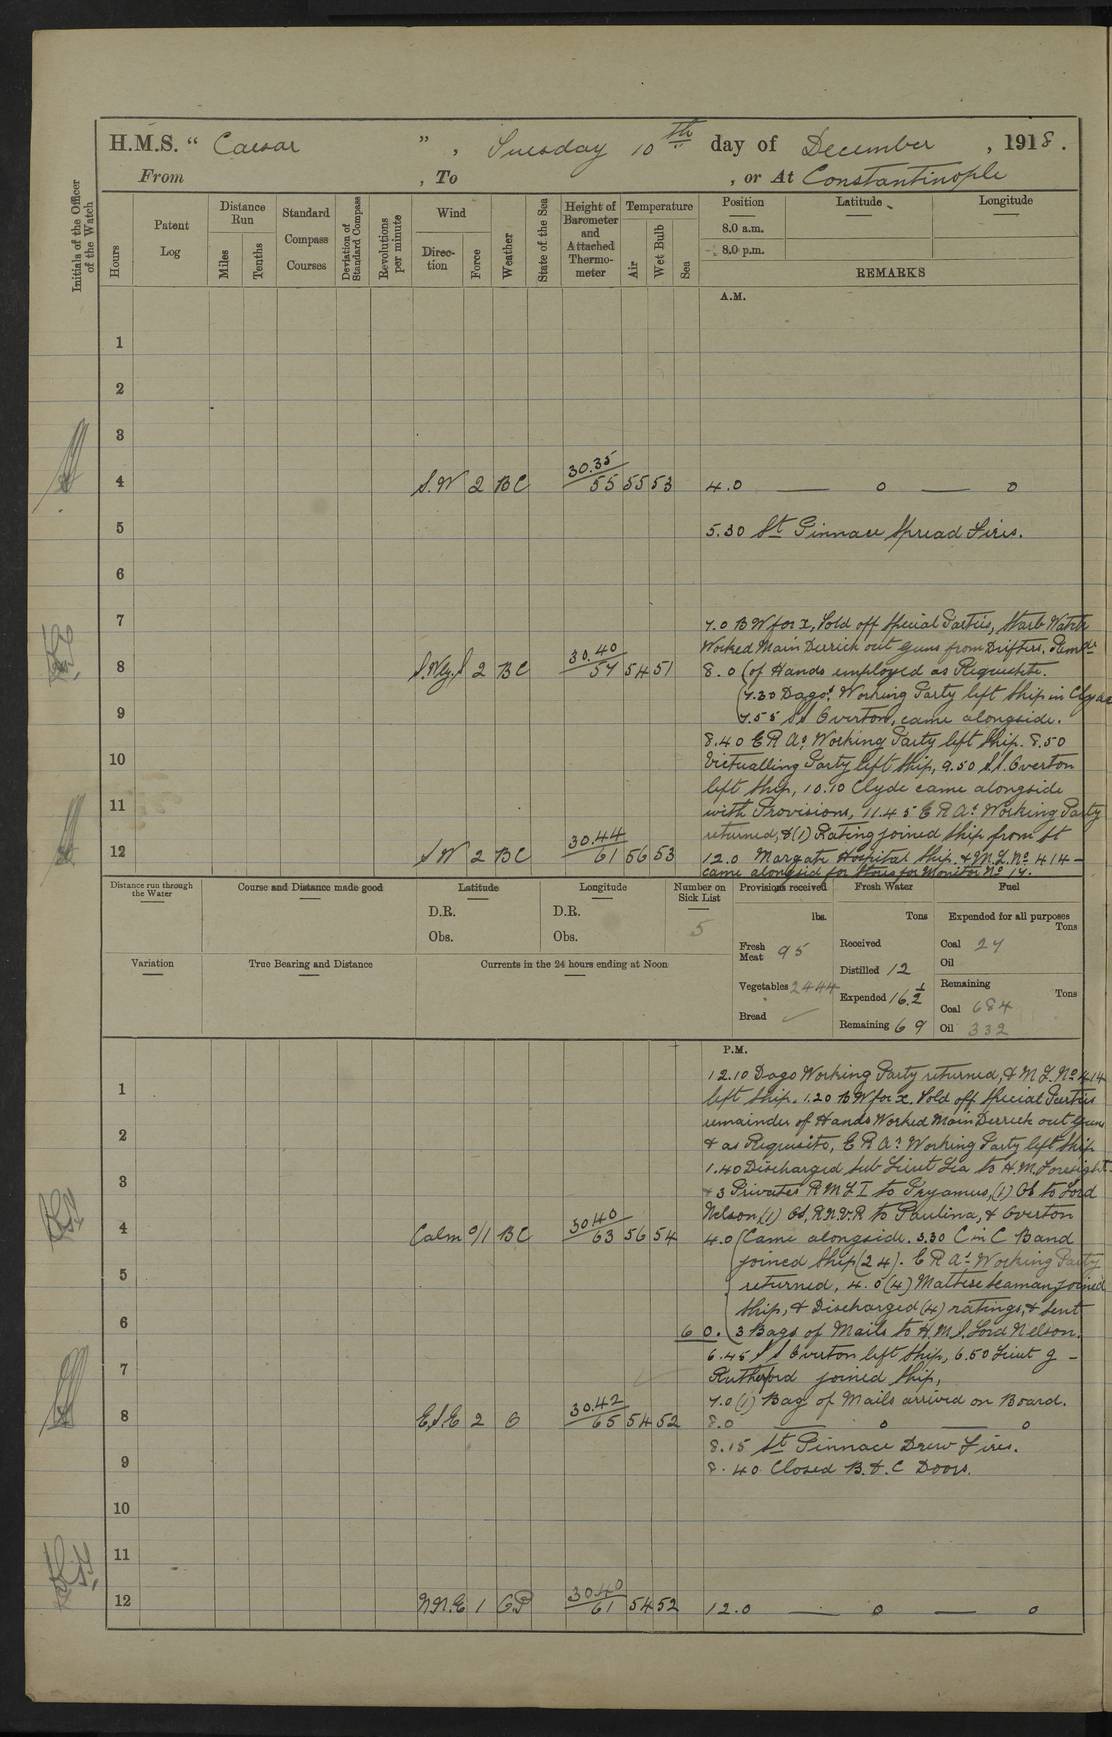 H.M.S. " Caesar ", Tuesday 10th day of December, 1918.
From , To , or At Constantinople
Initials of the Officer of the Watch
Hours
Patent Log
Distance Run
Miles
Tenths
Standard Compass Courses
Deviation of Standard Compass
Revolutions per minute
Wind
Direction
Force
Weather
State of the Sea
Height of Barometer and Attached Thermometer
Temperature
Air
Wet Bulb
Sea
Position
Latitude
Longitude
8.0 a.m.
8.0 p.m.
REMARKS
A.M.
1
2
3
4 S.W 2 BC 30.35 55 55 53 4.0 — 0 — 0
5 5.30 St Pinnace Spread Fires.
6
7 7.0 BW for x, Told off Special Parties, Starb Watch
Worked Main Derrick out Guns from Drifters. Remdr
8 S.W 2 BC 30.40 57 54 51 8.0 (of Hands employed as Requisite.
(7.30 Dago. Working Party left Ship in Clyde
9 7.55 SS Overton, came alongside.
8.40 E R As Working Party left Ship. 8.50
10 Victualling Party left Ship, 9.50 S.S. Overton
left Ship, 10.10 Clyde came alongside
11 with Provisions, 11.45 E R As Working Party
returned, & (1) Rating joined Ship from St
12 S W 2 BC 30.44 61 56 53 12.0 Margate Hospital Ship. & M.L. No 414 –
came alongsid for Stores for Monitor No 17.
Distance run through the Water
Course and Distance made good
Latitude
Longitude
Number on Sick List
Provisions received
Fresh Water
Fuel
D.R.
D.R.
5
lbs.
Tons
Expended for all purposes
Tons
Obs.
Obs.
Fresh Meat 95
Received
Coal 27
Oil
Variation
True Bearing and Distance
Currents in the 24 hours ending at Noon
Distilled 12
Vegetables 2444
Expended 16.½
Remaining
Tons
Coal 684
Bread ✓
Remaining 69
Oil 332
P.M.
12.10 Dago Working Party returned, & M L. No 414
1 left Ship. 1.20 BW for x. Told off Special Parties
remainder of Hands Worked Main Derrick out Guns
2 & as Requisite, E R As Working Party left Ship
1.40 Discharged Sub Lieut Lea to H.M. Foresight.
3 + 3 Privates R M L I to Pryamus, (1) OS to Lord
Nelson, (1) Od, R.N.V.R to Paulina, & Overton
4 Calm 0/1 BC 3040 63 56 54 4.0 (Came alongside. 3.30 C in C Band
joined Ship (24). E R As Working Party
5 returned, 4.0 (4) Maltese Seaman joined
Ship, & Discharged (4) ratings, & Sent
6 60. 3 Bags of Mails to H.M.S. Lord Nelson.
6.45 S S Overton left Ship, 6.50 Lieut G –
7 Rutherford joined Ship,
7.0 (1) Bag of Mails arrived on Board.
8 E.S.E 2 O 30.42 65 54 52 8.0 — 0 — 0
8.15 St Pinnace Drew Fires.
9 8.40 Closed B. & C Doors.
10
11
12 N.N.E 1 3040 61 54 52 12.0 — 0 — 0